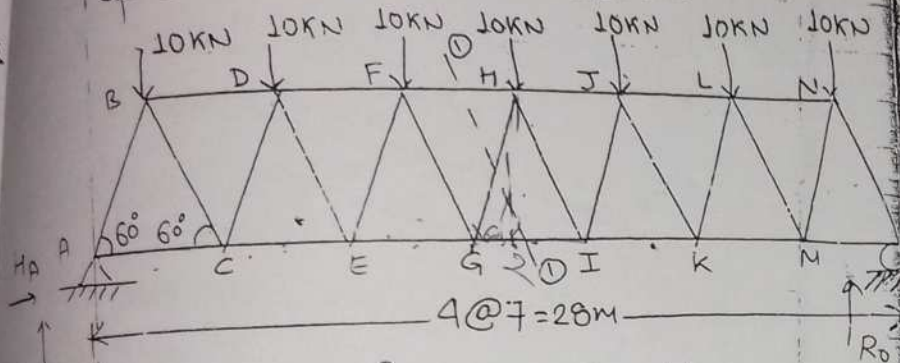 10KN 10KN 10KN 10KN 10KN 10KN 10KN
①
B D F H J L N
60° 60°
HA A C E G 2 ① I K M
4@7=28m
Ro